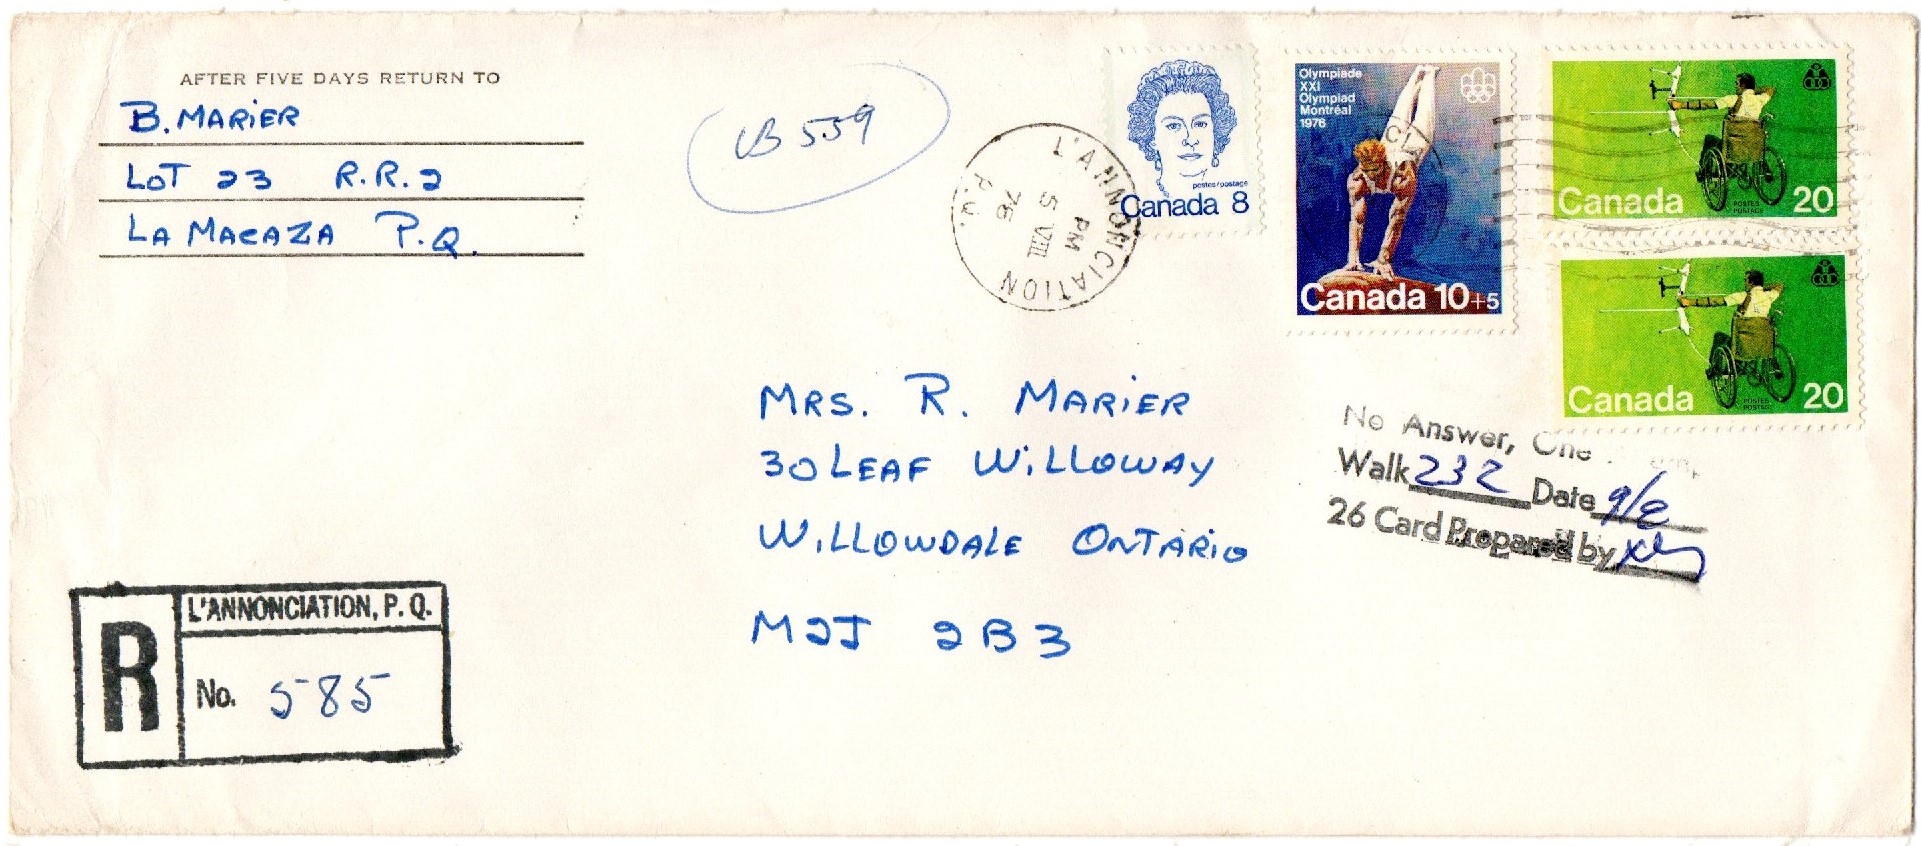 AFTER FIVE DAYS RETURN TO
B. MARIER
LOT 23 R.R.2
LA MACAZA P.Q.
559
L'ANNONCIATION
PM
5 VIII
76
P.Q.
postes/postage
Canada 8
Olympiade
XXI
Olympiad
Montréal
1976
Canada 10+5
POSTES
POSTAGE
Canada 20
POSTES
POSTAGE
Canada 20
MRS. R. MARIER
30 LEAF WILLOWAY
WILLOWDALE ONTARIO
M2J 2B3
No Answer, One
Walk 232 Date 9/8
26 Card Prepared by
R
L'ANNONCIATION, P. Q.
No. 585